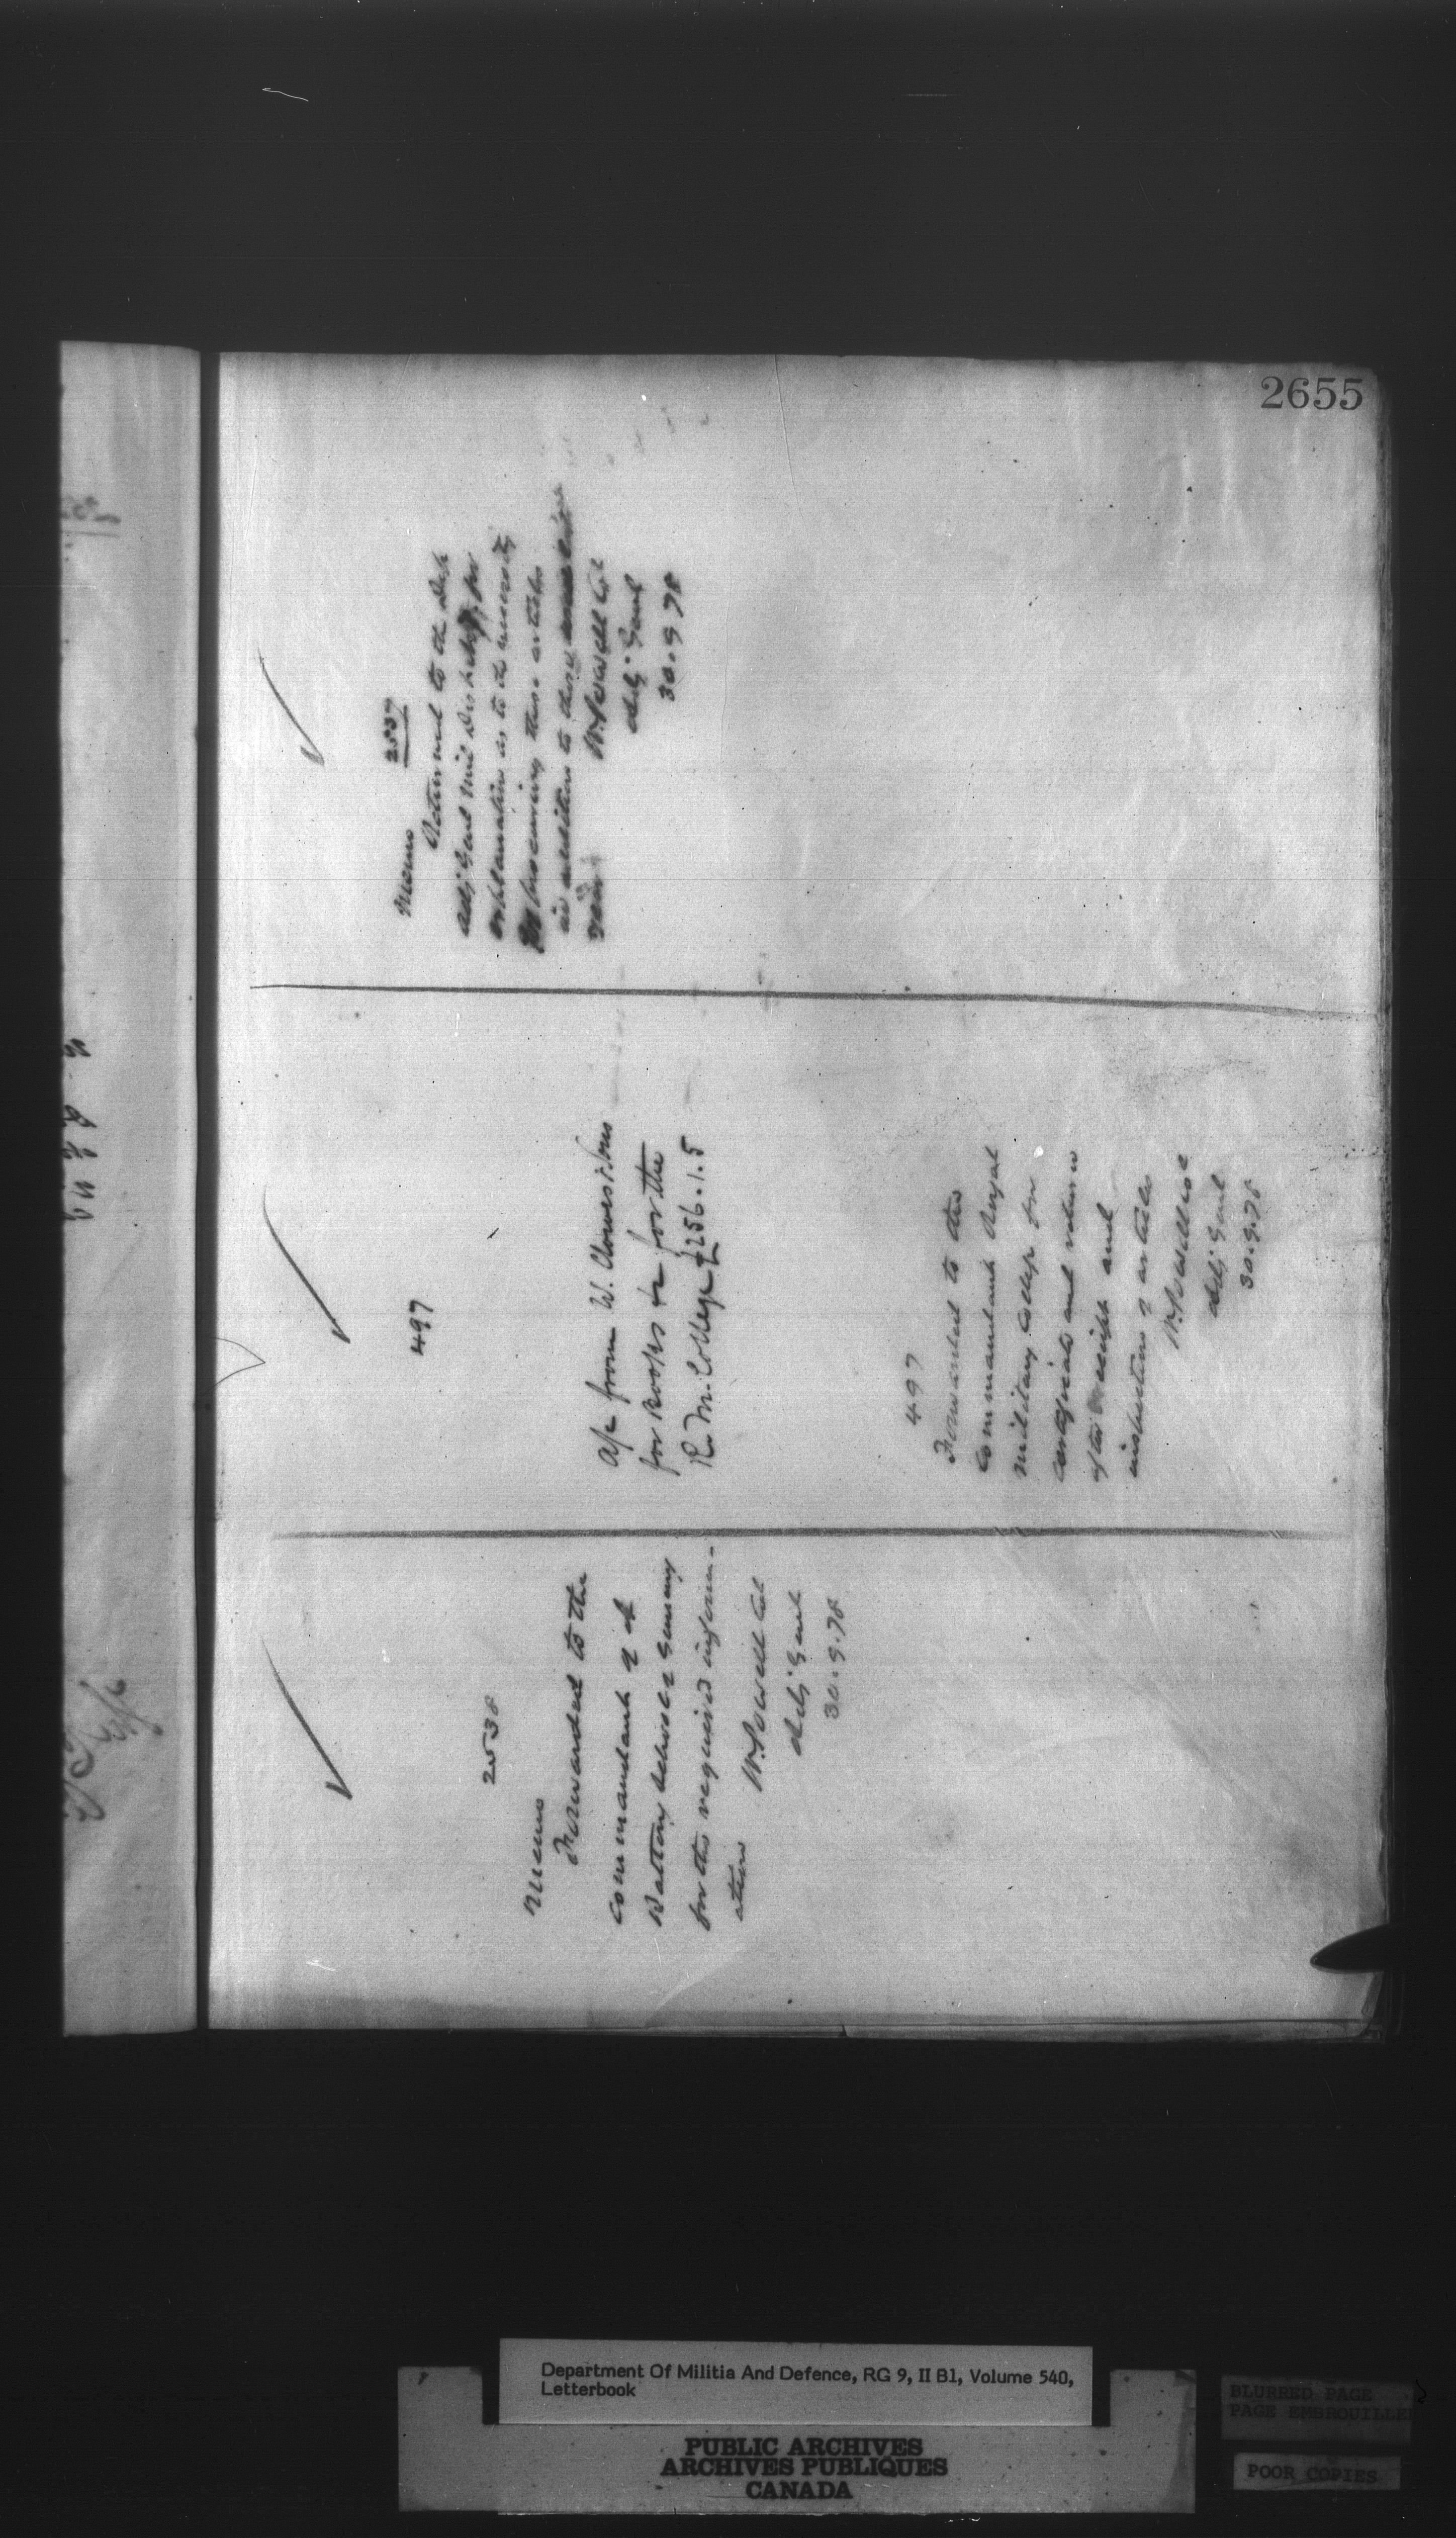 2655
2538
Memo
Forwarded to the
Commandant of A
Battery School of Gunnery
for the required inform-
ation
W. Powell Col
Adj: Genl
30.9.78
497
A/c from W. Clowes & Sons
for Books &c for the
R. M. College £256.1.5
497
Forwarded to the
Commandant Royal
Military College for
certificate and return
after receipt and
inspection of articles
W. Powell Col
Adj: Genl
30.9.78
2537
Memo
Returned to the Dep
Adj Genl Mil Dis for
explanation as to the necessity
procuring these articles
in addition to those
W. Powell Col
Adj: Genl
30.9.78
Department Of Militia And Defence, RG 9, II B1, Volume 540,
Letterbook
PUBLIC ARCHIVES
ARCHIVES PUBLIQUES
CANADA
BLURRED PAGE
PAGE EMBROUILLEE
POOR COPIES